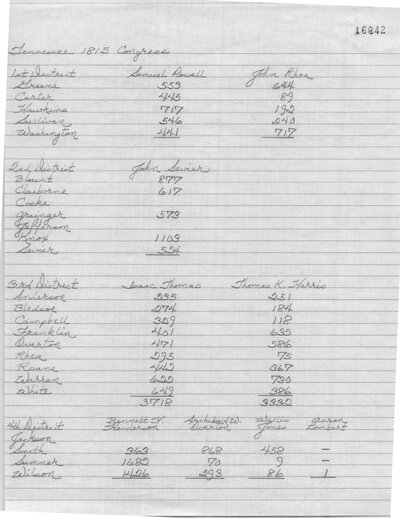 16842
Tennessee 1815 Congress
1st District Samuel Powell John Rhea
Greene 553 644
Carter 445 89
Hawkins 717 192
Sullivan 546 240
Washington 441 717
2nd District John Sevier
Blount 877
Claiborne 617
Cocke
Grainger 573
Jefferson
Knox 1103
Sevier 524
3rd District Isaac Thomas Thomas K. Harris
Anderson 235 251
Bledsoe 274 184
Campbell 329 118
Franklin 401 635
Overton 471 586
Rhea 295 75
Roane 442 367
Warren 622 730
White 649 386
3718 3332
4th District Bennett H. Henderson Archibald W. Overton Jones Aaron Lambert
Jackson
Smith 363 868 458 —
Sumner 1682 70 9 —
Wilson 1426 293 86 1